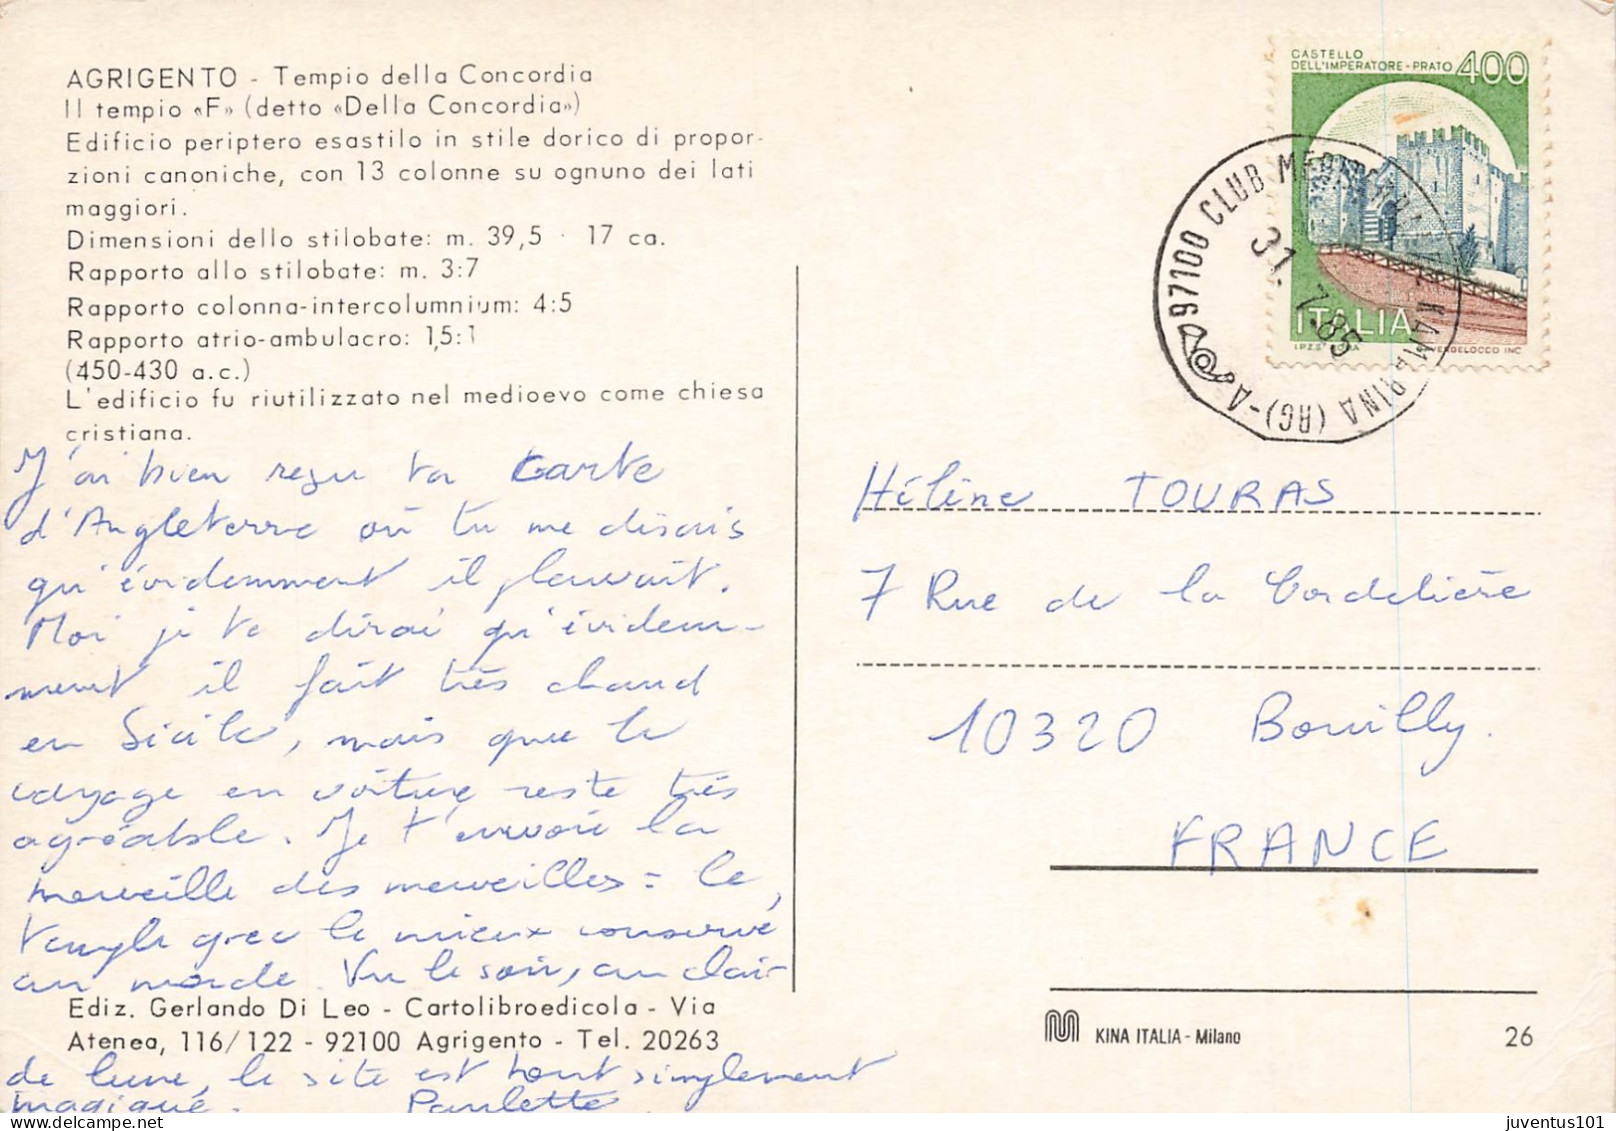 AGRIGENTO - Tempio della Concordia
Il tempio «F» (detto «Della Concordia»)
Edificio periptero esastilo in stile dorico di propor-
zioni canoniche, con 13 colonne su ognuno dei lati
maggiori.
Dimensioni dello stilobate: m. 39,5 · 17 ca.
Rapporto allo stilobate: m. 3:7
Rapporto colonna-intercolumnium: 4:5
Rapporto atrio-ambulacro: 1,5:1
(450-430 a.c.)
L'edificio fu riutilizzato nel medioevo come chiesa
cristiana.
J'ai bien reçu ta carte
d'Angleterre où tu me disais
qu'évidemment il pleuvait.
Moi je te dirai qu'évidem-
ment il fait très chaud
en Sicile, mais que le
voyage en voiture reste très
agréable. Je t'envoie la
merveille des merveilles = le
temple grec le mieux conservé
au monde. Vu le soir, au clair
Ediz. Gerlando Di Leo - Cartolibroedicola - Via
Atenea, 116/122 - 92100 Agrigento - Tel. 20263
de lune, le site est tout simplement
magique. Paulette
CASTELLO
DELL'IMPERATORE - PRATO 400
ITALIA
I.P.Z.S. VERDELOCCO INC
97100 CLUB KAMARINA (RG) - A
31.7.85
Hélène TOURAS
7 Rue de la Cordelière
10320 Bouilly.
FRANCE
KINA ITALIA - Milano
26
juventus101